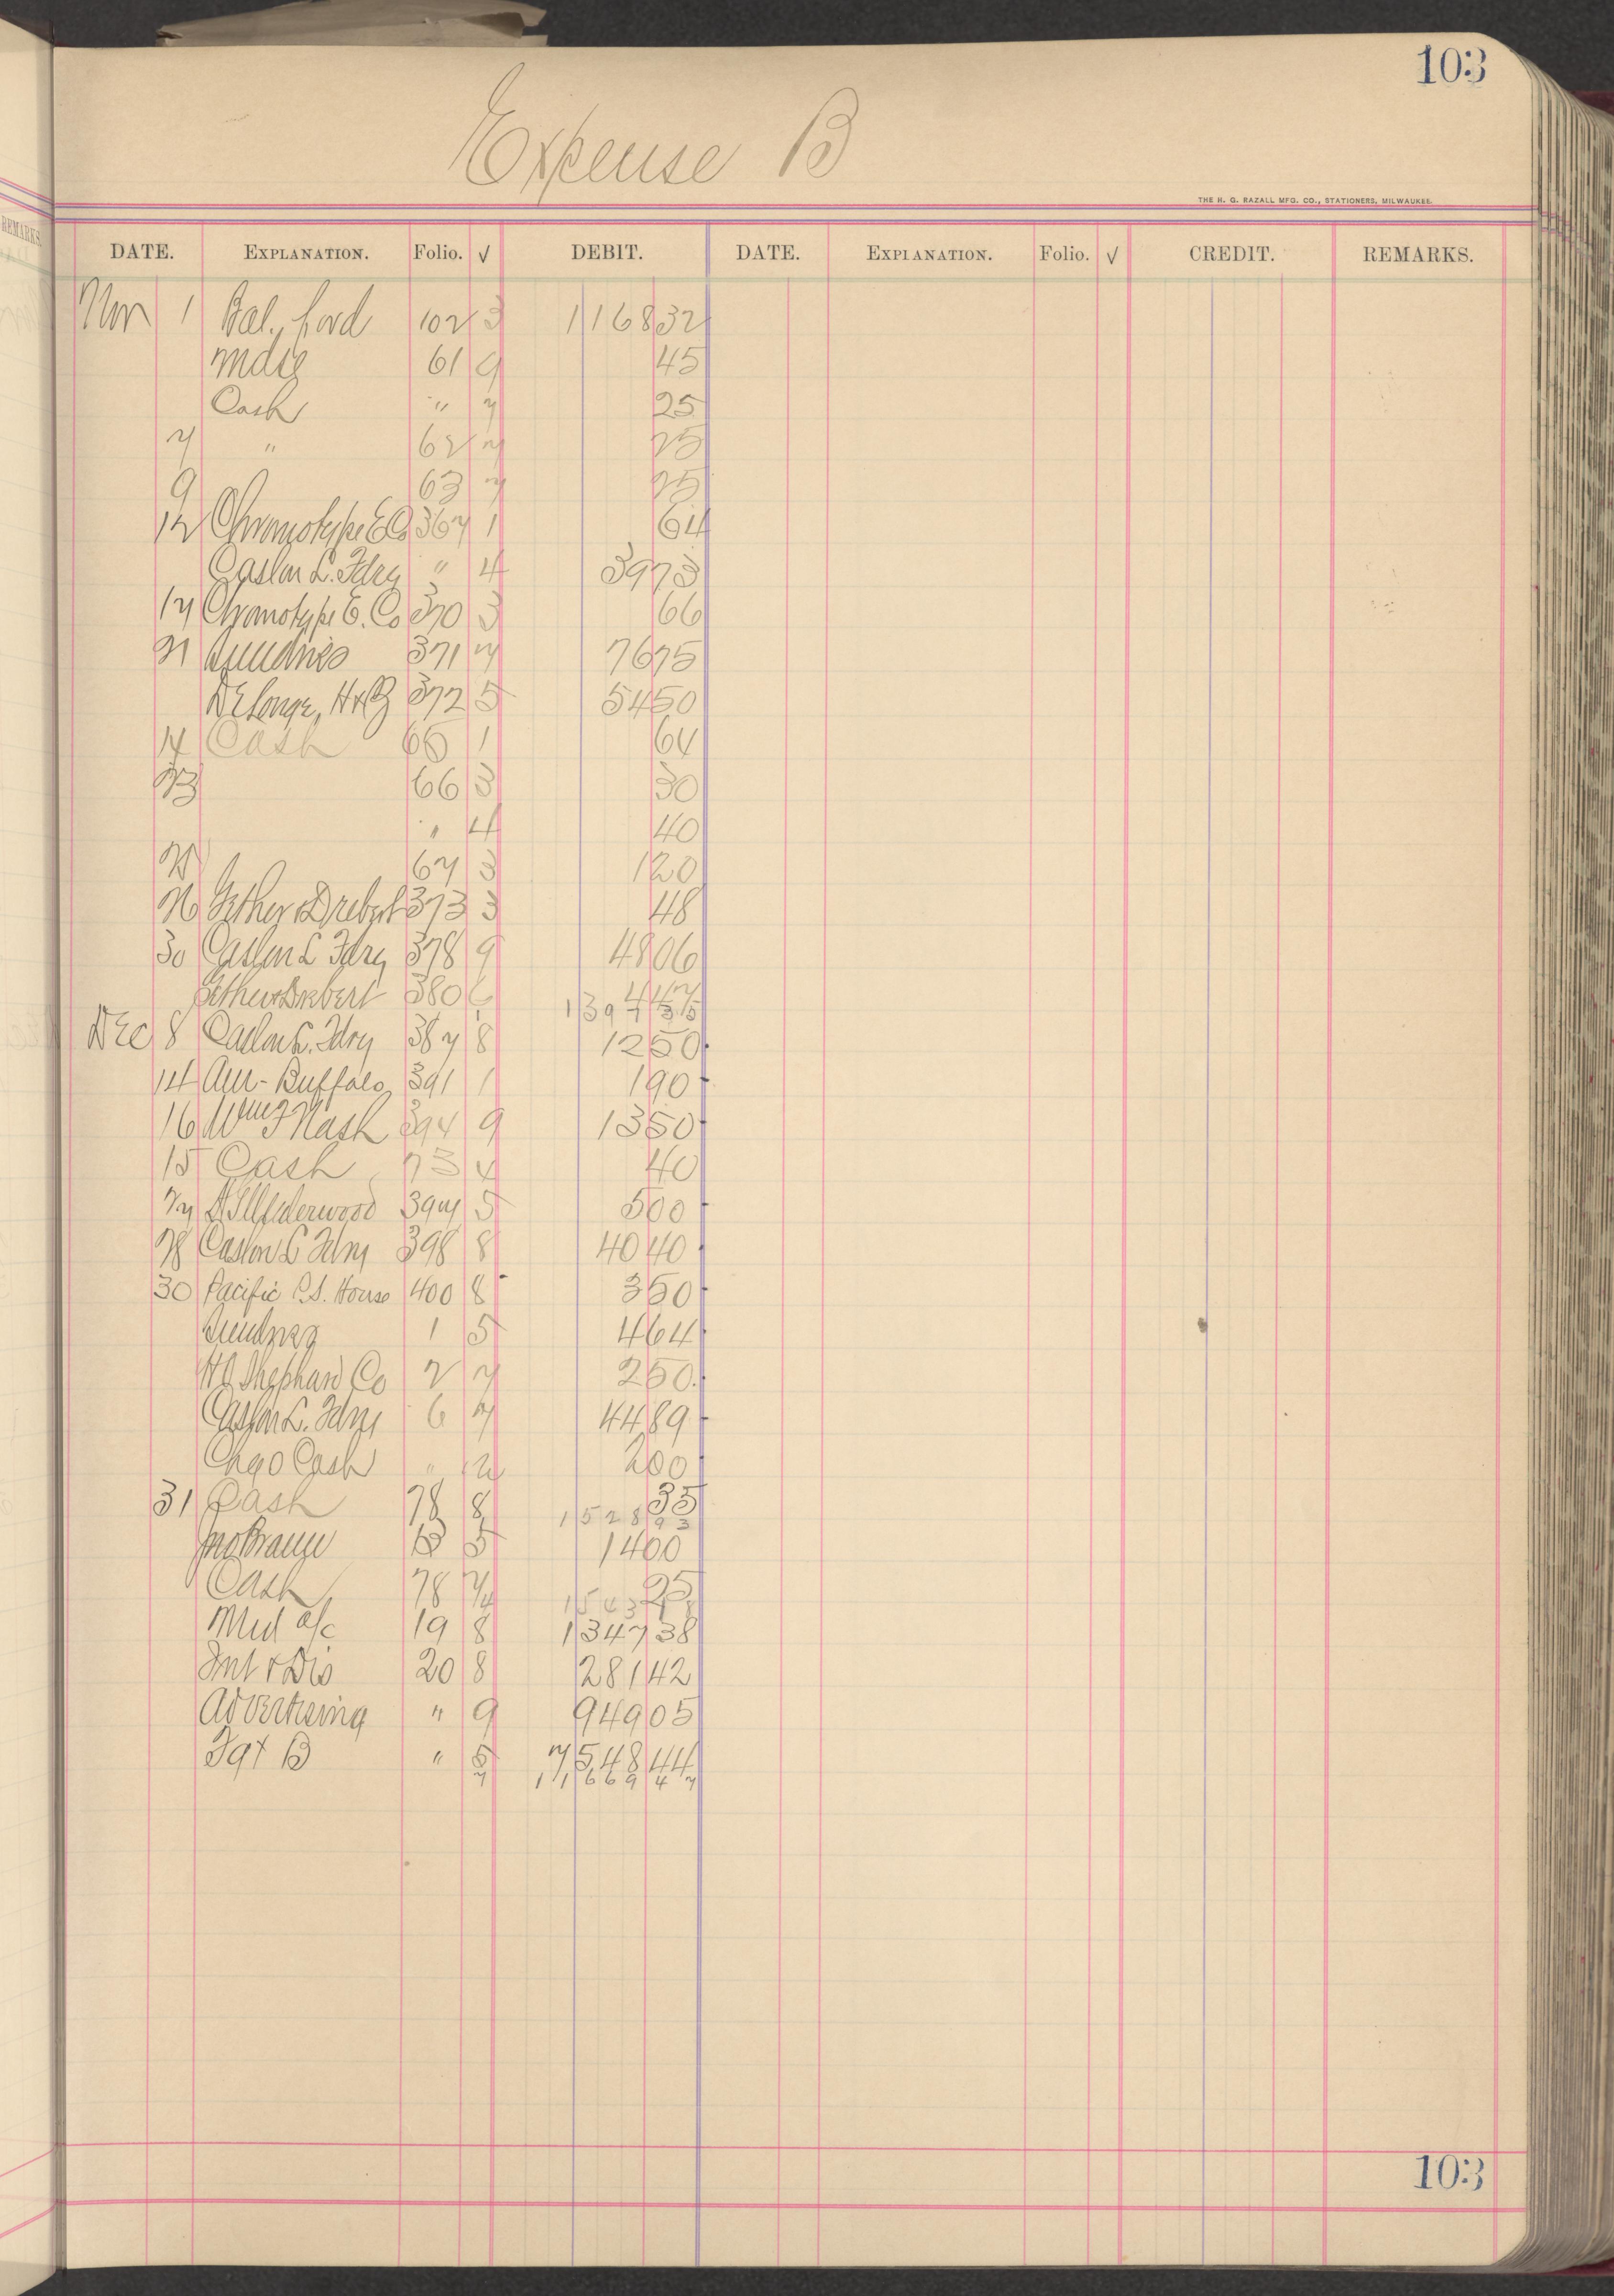 103
Expense B
THE H. G. RAZALL MFG. CO., STATIONERS, MILWAUKEE.
REMARKS.
DATE. EXPLANATION. Folio. √ DEBIT. DATE. EXPLANATION. Folio. √ CREDIT. REMARKS.
Nov 1 Bal. ford 102 3 1168 32
Mdse 61 9 45
Cash " 7 25
7 " 62 7 25
9 63 7 25
12 Chromotype E Co 367 1 64
Caslon L. Fdry " 4 39 73
17 Chromotype E. Co 370 3 66
21 Sundries 371 7 76 75
DeLonge, H & B 372 5 54 50
14 Cash 65 1 64
23 66 3 30
" 4 40
67 3 1 20
26 Gether & Drebert 373 3 48
30 Caslon L Fdry 378 9 48 06
Gether & Drebert 380 6
1394 35
Dec 8 Caslon L. Fdry 387 8 12 50
14 Am- Buffalo 391 1 1 90
16 Wm F Nash 394 9 13 50
15 Cash 73 4 40
27 Underwood 397 5 5 00
28 Caslon L Fdry 398 8 40 40
30 Pacific P.S. House 400 8 3 50
Sundries 1 5 4 64
H O Shephard Co 2 7 2 50
Caslon L. Fdry 6 7 44 89
Chgo Cash " 12 2 00
31 Cash 78 8 35
1528 93
Jno Brauer 13 5 14 00
Cash 78 25
1543 18
Mul a/c 19 8 1347 38
Int & Dis 20 8 281 42
Advertising " 9 949 05
Fgt B " 5 7548 44
7 11669 47
103